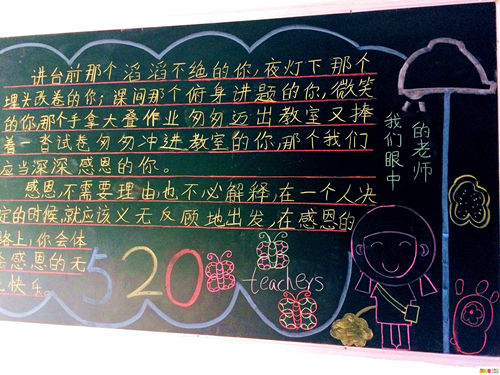 讲台前那个滔滔不绝的你,夜灯下那个
埋头改卷的你;课间那个俯身讲题的你,微笑
的你,那个手拿大叠作业匆匆迈出教室又捧
着一沓试卷匆匆冲进教室的你,那个我们
应当深深感恩的你。
感恩,不需要理由,也不必解释,在一个人决
定的时候,就应该义无反顾地出发,在感恩的
路上,你会体
会感恩的无
上快乐。
520
teachers
我们眼中
的老师